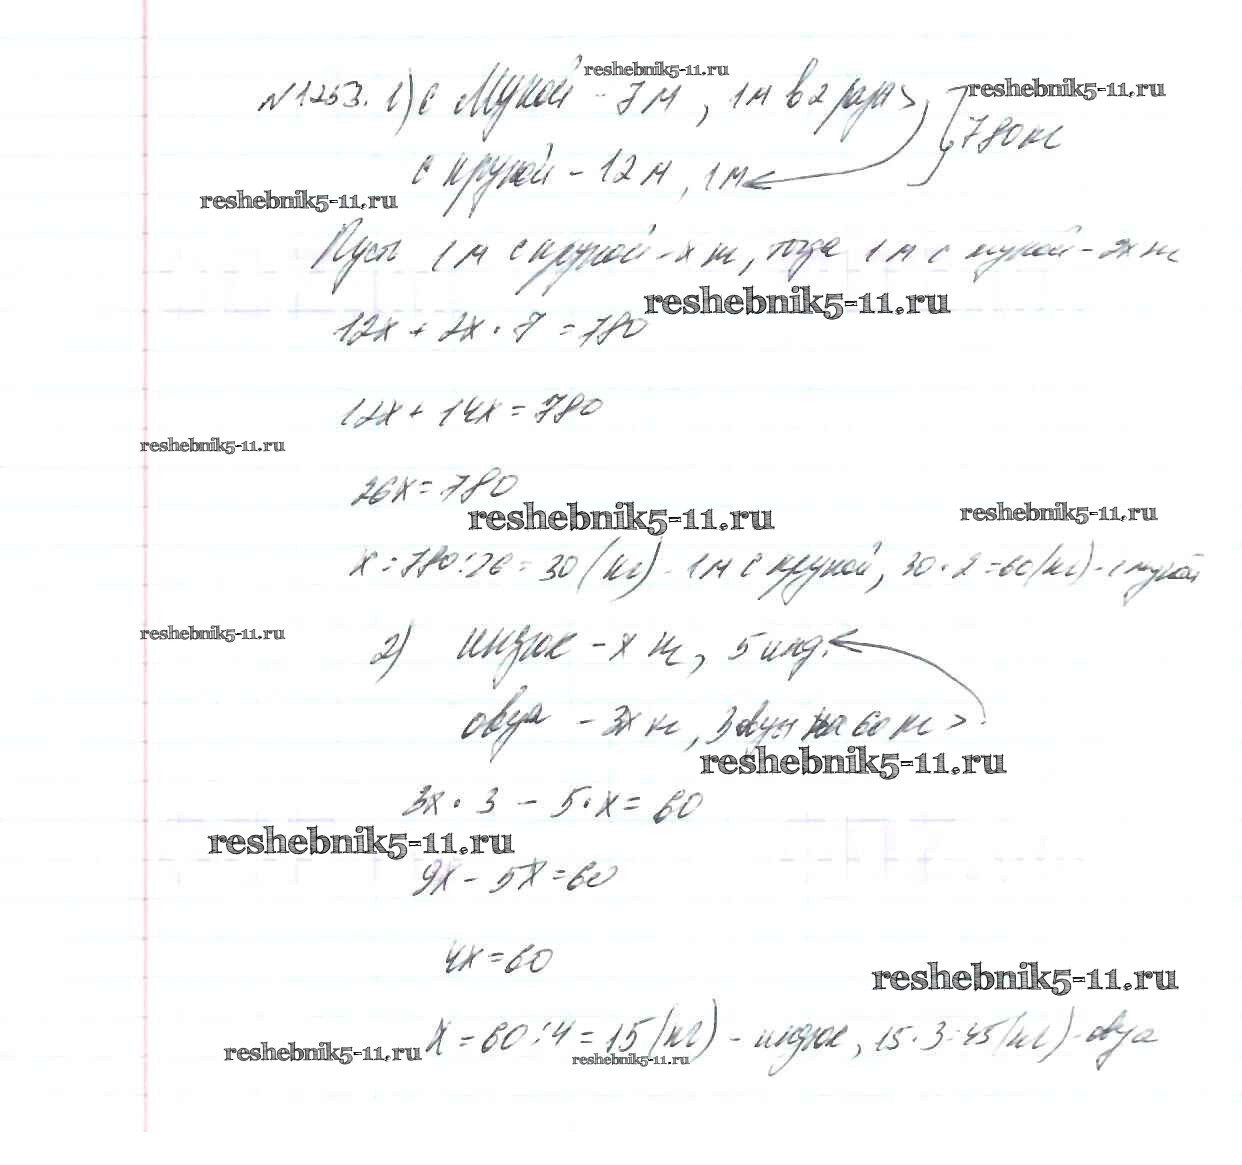 reshebnik5-11.ru
№1253. 1) с мукой - 7 м, 1м в 2 раза > reshebnik5-11.ru
780 кг
с крупой - 12 м, 1 м
reshebnik5-11.ru
Пусть 1 м с крупой - х кг, тогда 1 м с мукой - 2х кг
reshebnik5-11.ru
12х + 2х · 7 = 780
12х + 14х = 780
reshebnik5-11.ru
26х = 780
reshebnik5-11.ru reshebnik5-11.ru
х = 780 : 26 = 30 (кг) - 1 м с крупой, 30 · 2 = 60 (кг) - с мукой
reshebnik5-11.ru
2) индюк - х кг, 5 инд.
овца - 3х кг, 3 овцы на 60 кг >
reshebnik5-11.ru
3х · 3 - 5 · х = 60
reshebnik5-11.ru
9х - 5х = 60
4х = 60
reshebnik5-11.ru
х = 60 : 4 = 15 (кг) - индюк, 15 · 3 = 45 (кг) - овца
reshebnik5-11.ru
reshebnik5-11.ru